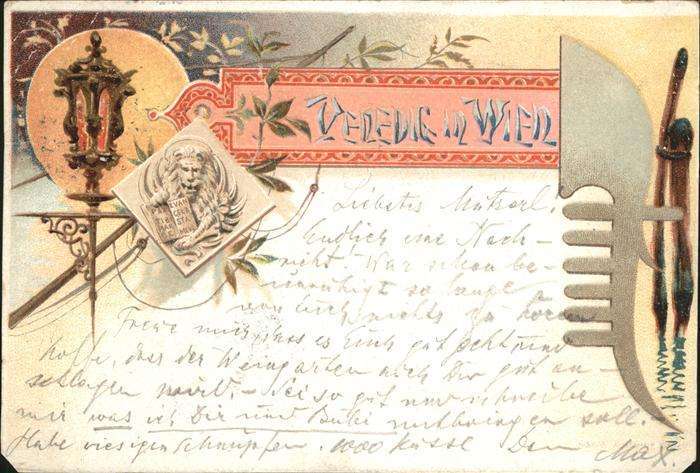 VENEDIG in WIEN
EVAN
GELI
STA
MEUS
Liebstes Mutzerl.
Endlich eine Nach-
richt! War schon be-
unruhigt so lange
von Euch nichts zu hören
Freue mich dass es Euch gut geht und
hoffe, dass der Weingarten auch Dir gut an-
schlagen wird. – Sei so gut und schreibe
mir was ich Dir und mitbringen soll.
Habe riesigen Schnupfen. 1000 Küsse Dein Max.